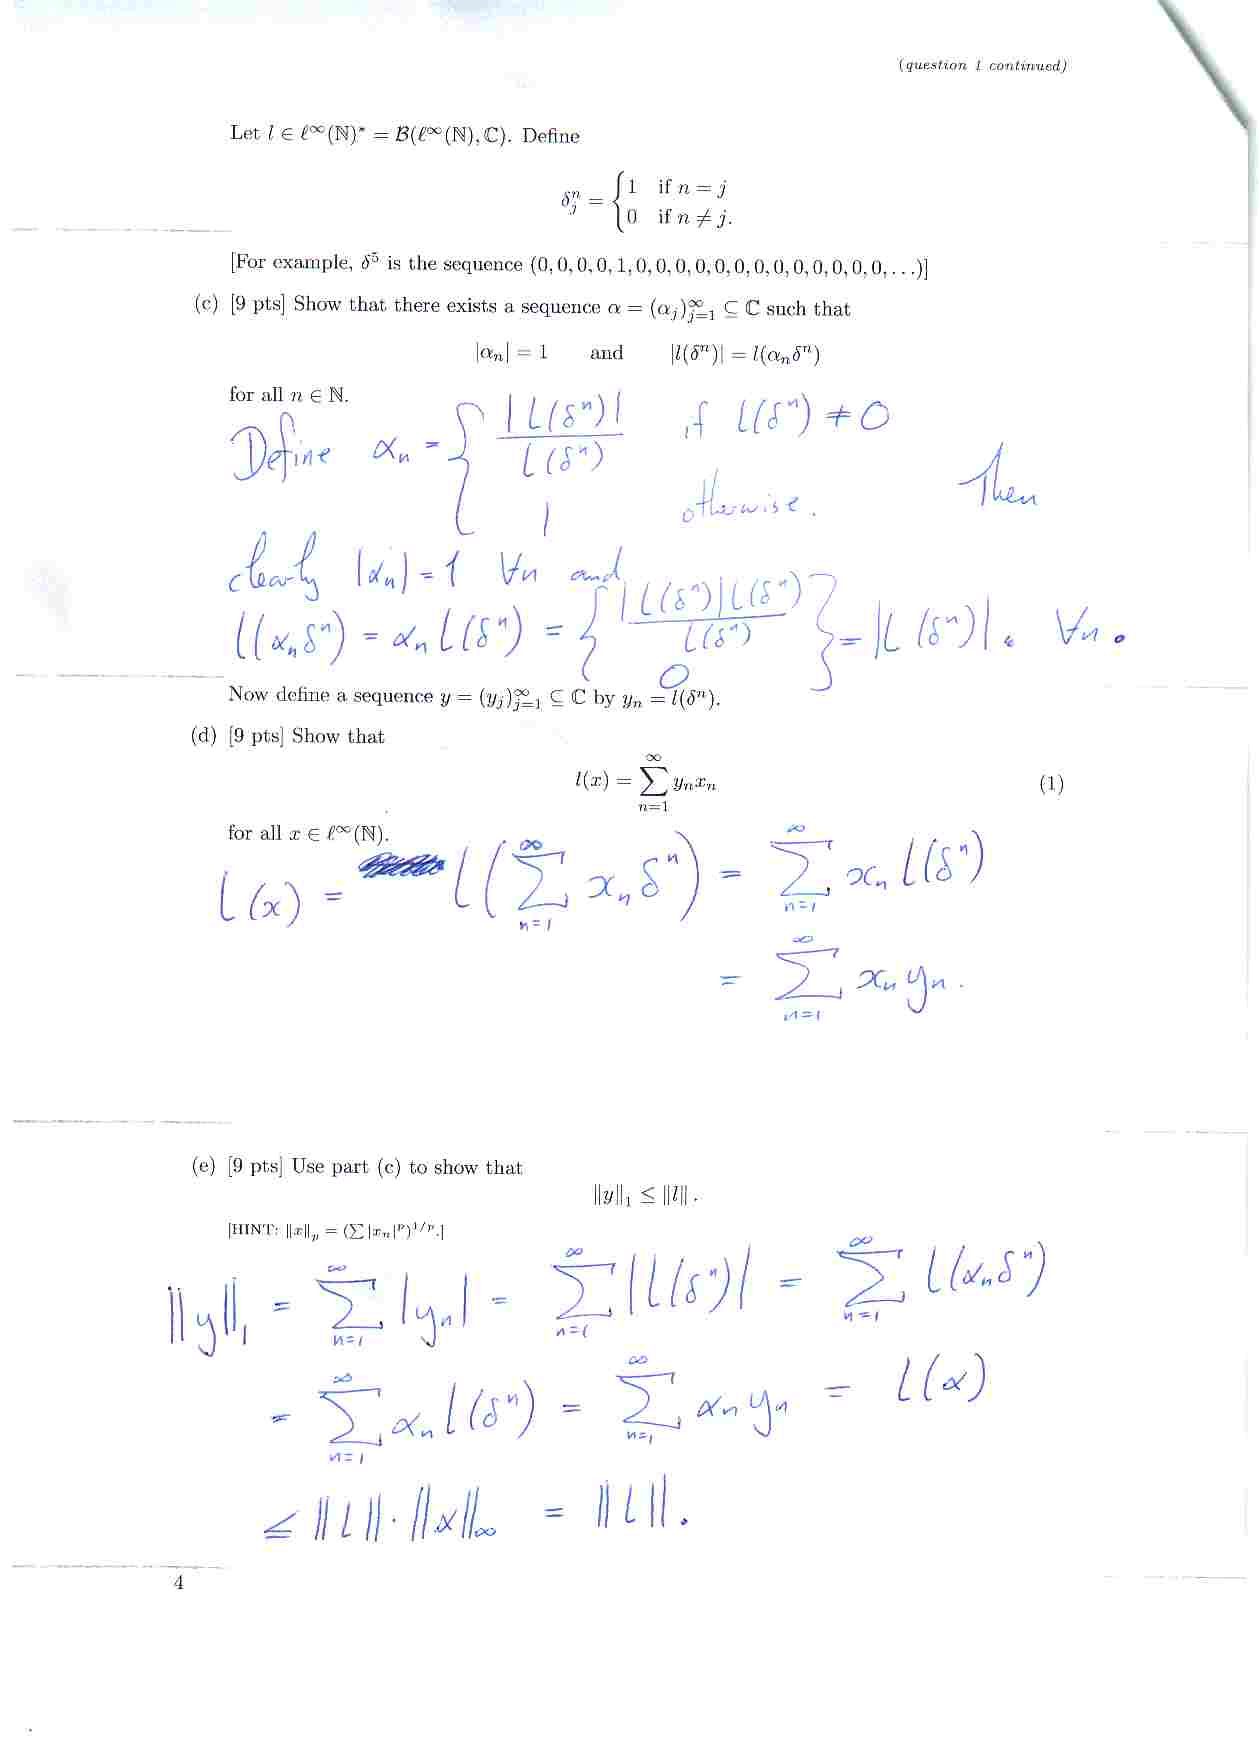 (question 1 continued)
Let l ∈ ℓ^∞(ℕ)* = 𝓑(ℓ^∞(ℕ), ℂ). Define
δ_j^n = { 1 if n = j
0 if n ≠ j.
[For example, δ^5 is the sequence (0, 0, 0, 0, 1, 0, 0, 0, 0, 0, 0, 0, 0, 0, 0, 0, 0, 0, . . .)]
(c) [9 pts] Show that there exists a sequence α = (α_j)_{j=1}^∞ ⊆ ℂ such that
|α_n| = 1 and |l(δ^n)| = l(α_n δ^n)
for all n ∈ ℕ.
Define α_n = { |l(δ^n)| / l(δ^n) if l(δ^n) ≠ 0
1 otherwise. Then
clearly |α_n| = 1 ∀n and
l(α_n δ^n) = α_n l(δ^n) = { |l(δ^n)| l(δ^n) / l(δ^n)
0 } = |l(δ^n)|. ∀n.
Now define a sequence y = (y_j)_{j=1}^∞ ⊆ ℂ by y_n = l(δ^n).
(d) [9 pts] Show that
l(x) = ∑_{n=1}^∞ y_n x_n (1)
for all x ∈ ℓ^∞(ℕ).
l(x) = l(∑_{n=1}^∞ x_n δ^n) = ∑_{n=1}^∞ x_n l(δ^n)
= ∑_{n=1}^∞ x_n y_n.
(e) [9 pts] Use part (c) to show that
‖y‖_1 ≤ ‖l‖ .
[HINT: ‖x‖_p = (∑ |x_n|^p)^{1/p}.]
‖y‖_1 = ∑_{n=1}^∞ |y_n| = ∑_{n=1}^∞ |l(δ^n)| = ∑_{n=1}^∞ l(α_n δ^n)
= ∑_{n=1}^∞ α_n l(δ^n) = ∑_{n=1}^∞ α_n y_n = l(α)
≤ ‖l‖ · ‖α‖_∞ = ‖l‖.
4